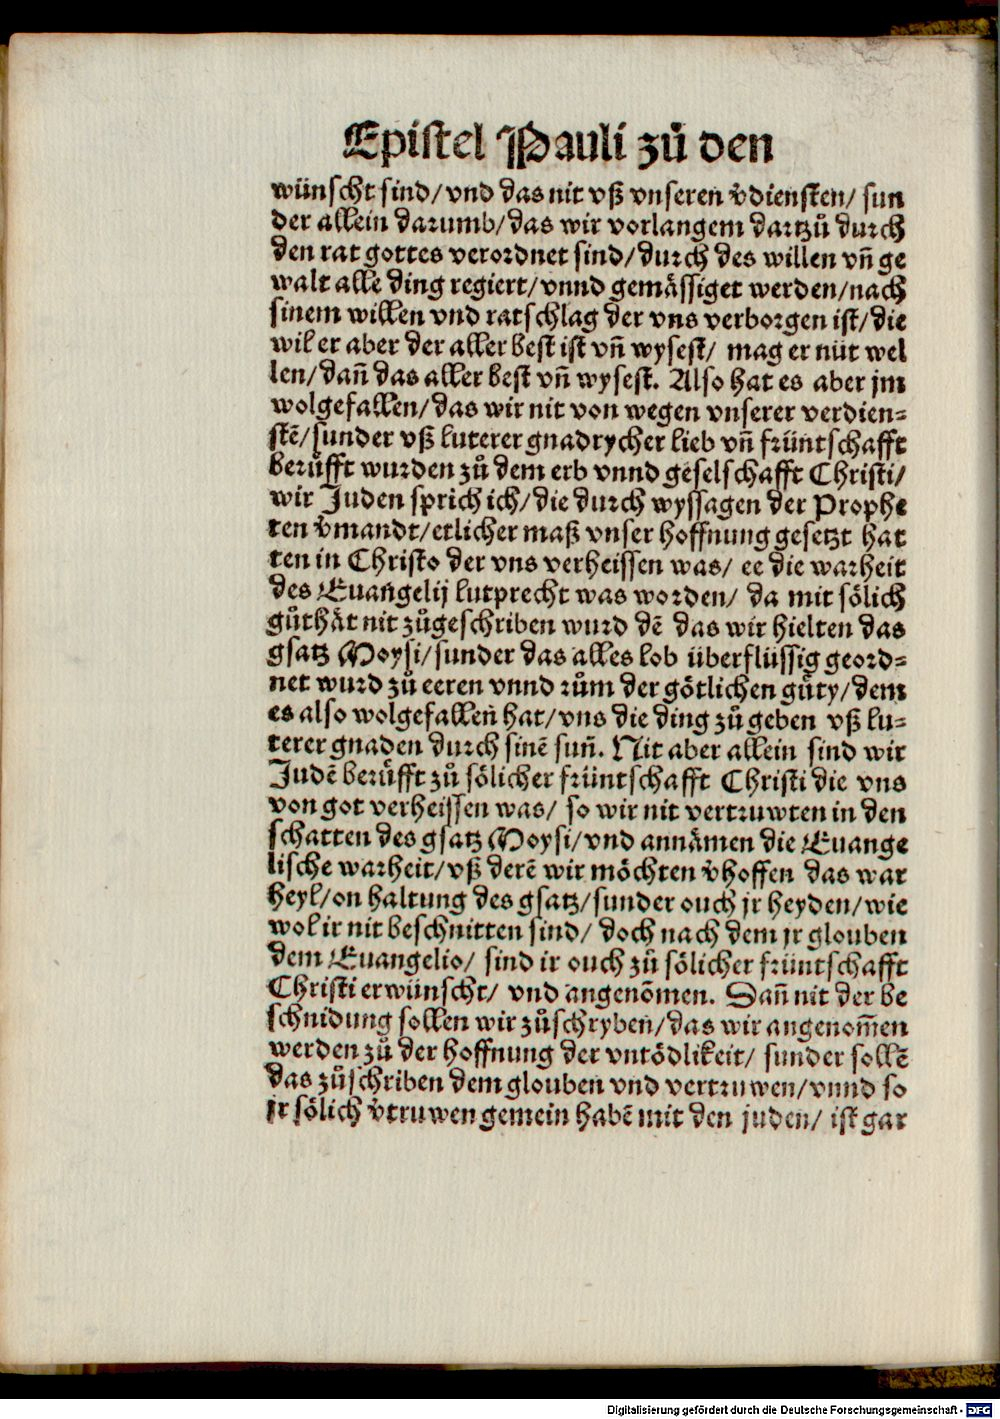 Epistel Pauli zů den
wünscht sind/ vnd das nit vß vnseren v̄diensten/ sun
der allein darumb/ das wir vorlangem dartzů durch
den rat gottes verordnet sind/ durch des willen vn̄ ge
walt alle ding regiert/ vnnd gemässiget werden/ nach
sinem willen vnd ratschlag der vns verborgen ist/ die
wil er aber der aller best ist vn̄ wysest/ mag er nüt wel
len/ dan̄ das aller best vn̄ wysest. Also hat es aber jm
wolgefallen/ das wir nit von wegen vnserer verdien⸗
stē/ sunder vß luterer gnadrycher lieb vn̄ früntschafft
berůfft wurden zů dem erb vnnd geselschafft Christi/
wir Juden sprich ich/ die durch wyssagen der Prophe
ten v̄mandt/ etlicher maß vnser hoffnung gesetzt hat
ten in Christo der vns verheissen was/ ee die warheit
des Euangelij lutprecht was worden/ da mit sölich
gůthät nit zůgeschriben wurd dē das wir hielten das
gsatz Moysi/ sunder das alles lob überflüssig geord⸗
net wurd zů eeren vnnd rům der götlichen gůty/ dem
es also wolgefallen hat/ vns die ding zů geben vß lu⸗
terer gnaden durch sinē sun̄. Nit aber allein sind wir
Judē berůfft zů sölicher früntschafft Christi die vns
von got verheissen was/ so wir nit vertruwten in den
schatten des gsatz Moysi/ vnd annämen die Euange
lische warheit/ vß derē wir möchten v̄hoffen das war
heyl/ on haltung des gsatz/ sunder ouch jr heyden/ wie
wol ir nit beschnitten sind/ doch nach dem jr glouben
dem Euangelio/ sind ir ouch zů sölicher früntschafft
Christi erwünscht/ vnd angenōmen. Dan̄ nit der be
schnidung sollen wir zůschryben/ das wir angenom̄en
werden zů der hoffnung der vntödlikeit/ sunder sollē
das zůschriben dem glouben vnd vertruwen/ vnnd so
jr sölich v̄truwen gemein habē mit den juden/ ist gar
Digitalisierung gefördert durch die Deutsche Forschungsgemeinschaft - DFG